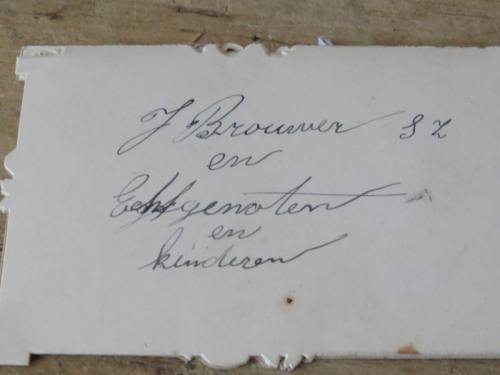 J Brouwer SZ
en
Echtgenoten
en
kinderen